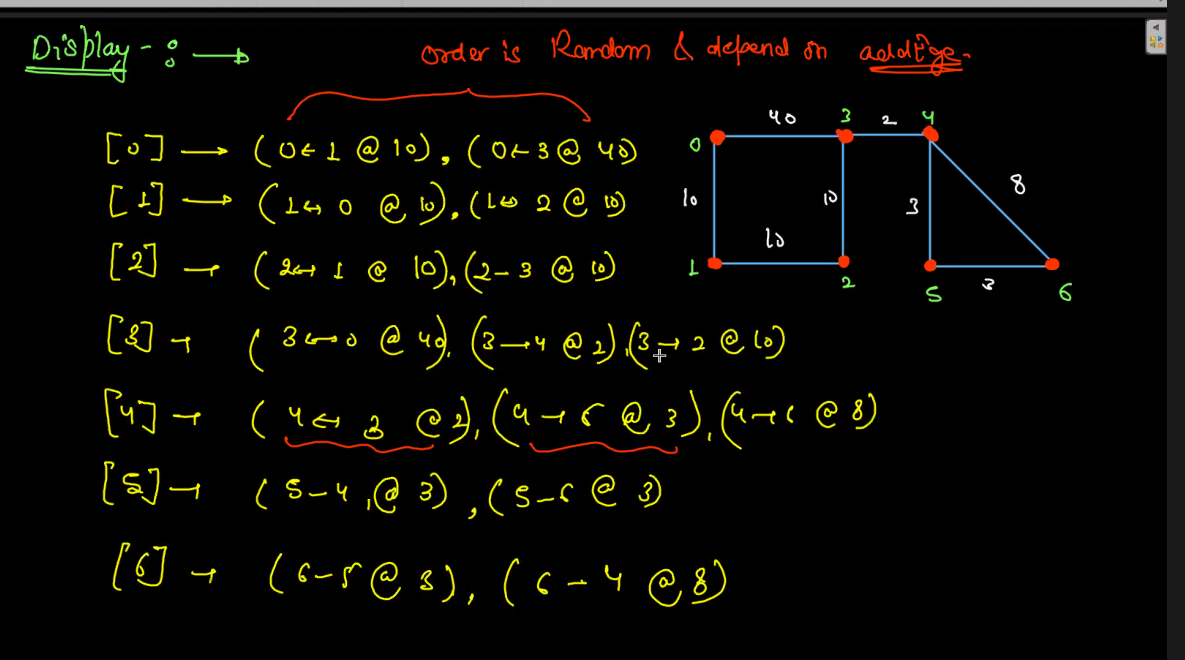 Display - : → order is Random & depend on addEdge.
[0] → (0 ← 1 @ 10), (0 ← 3 @ 40)
[1] → (1 ↔ 0 @ 10), (1 ↔ 2 @ 10)
[2] → (2 ↔ 1 @ 10), (2 - 3 @ 10)
[3] → (3 ↔ 0 @ 40), (3 → 4 @ 2), (3 → 2 @ 10)
[4] → (4 ↔ 3 @ 2), (4 → 5 @ 3), (4 → 6 @ 8)
[5] → (5 - 4, @ 3), (5 - 6 @ 3)
[6] → (6 - 5 @ 3), (6 - 4 @ 8)
40 3 2 4
0
10 10 3 8
10
1 2 5 3 6